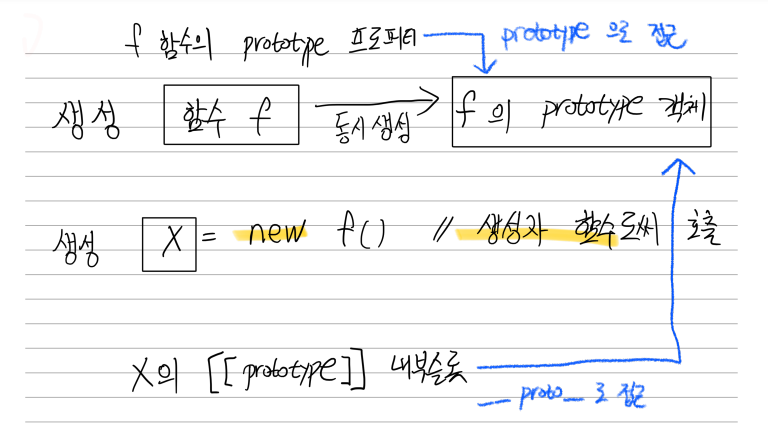 f 함수의 prototype 프로퍼티 prototype 으로 접근
생성 함수 f 동시 생성 f 의 prototype 객체
생성 X = new f() // 생성자 함수로써 호출
X의 [[prototype]] 내부슬롯
__proto__로 접근